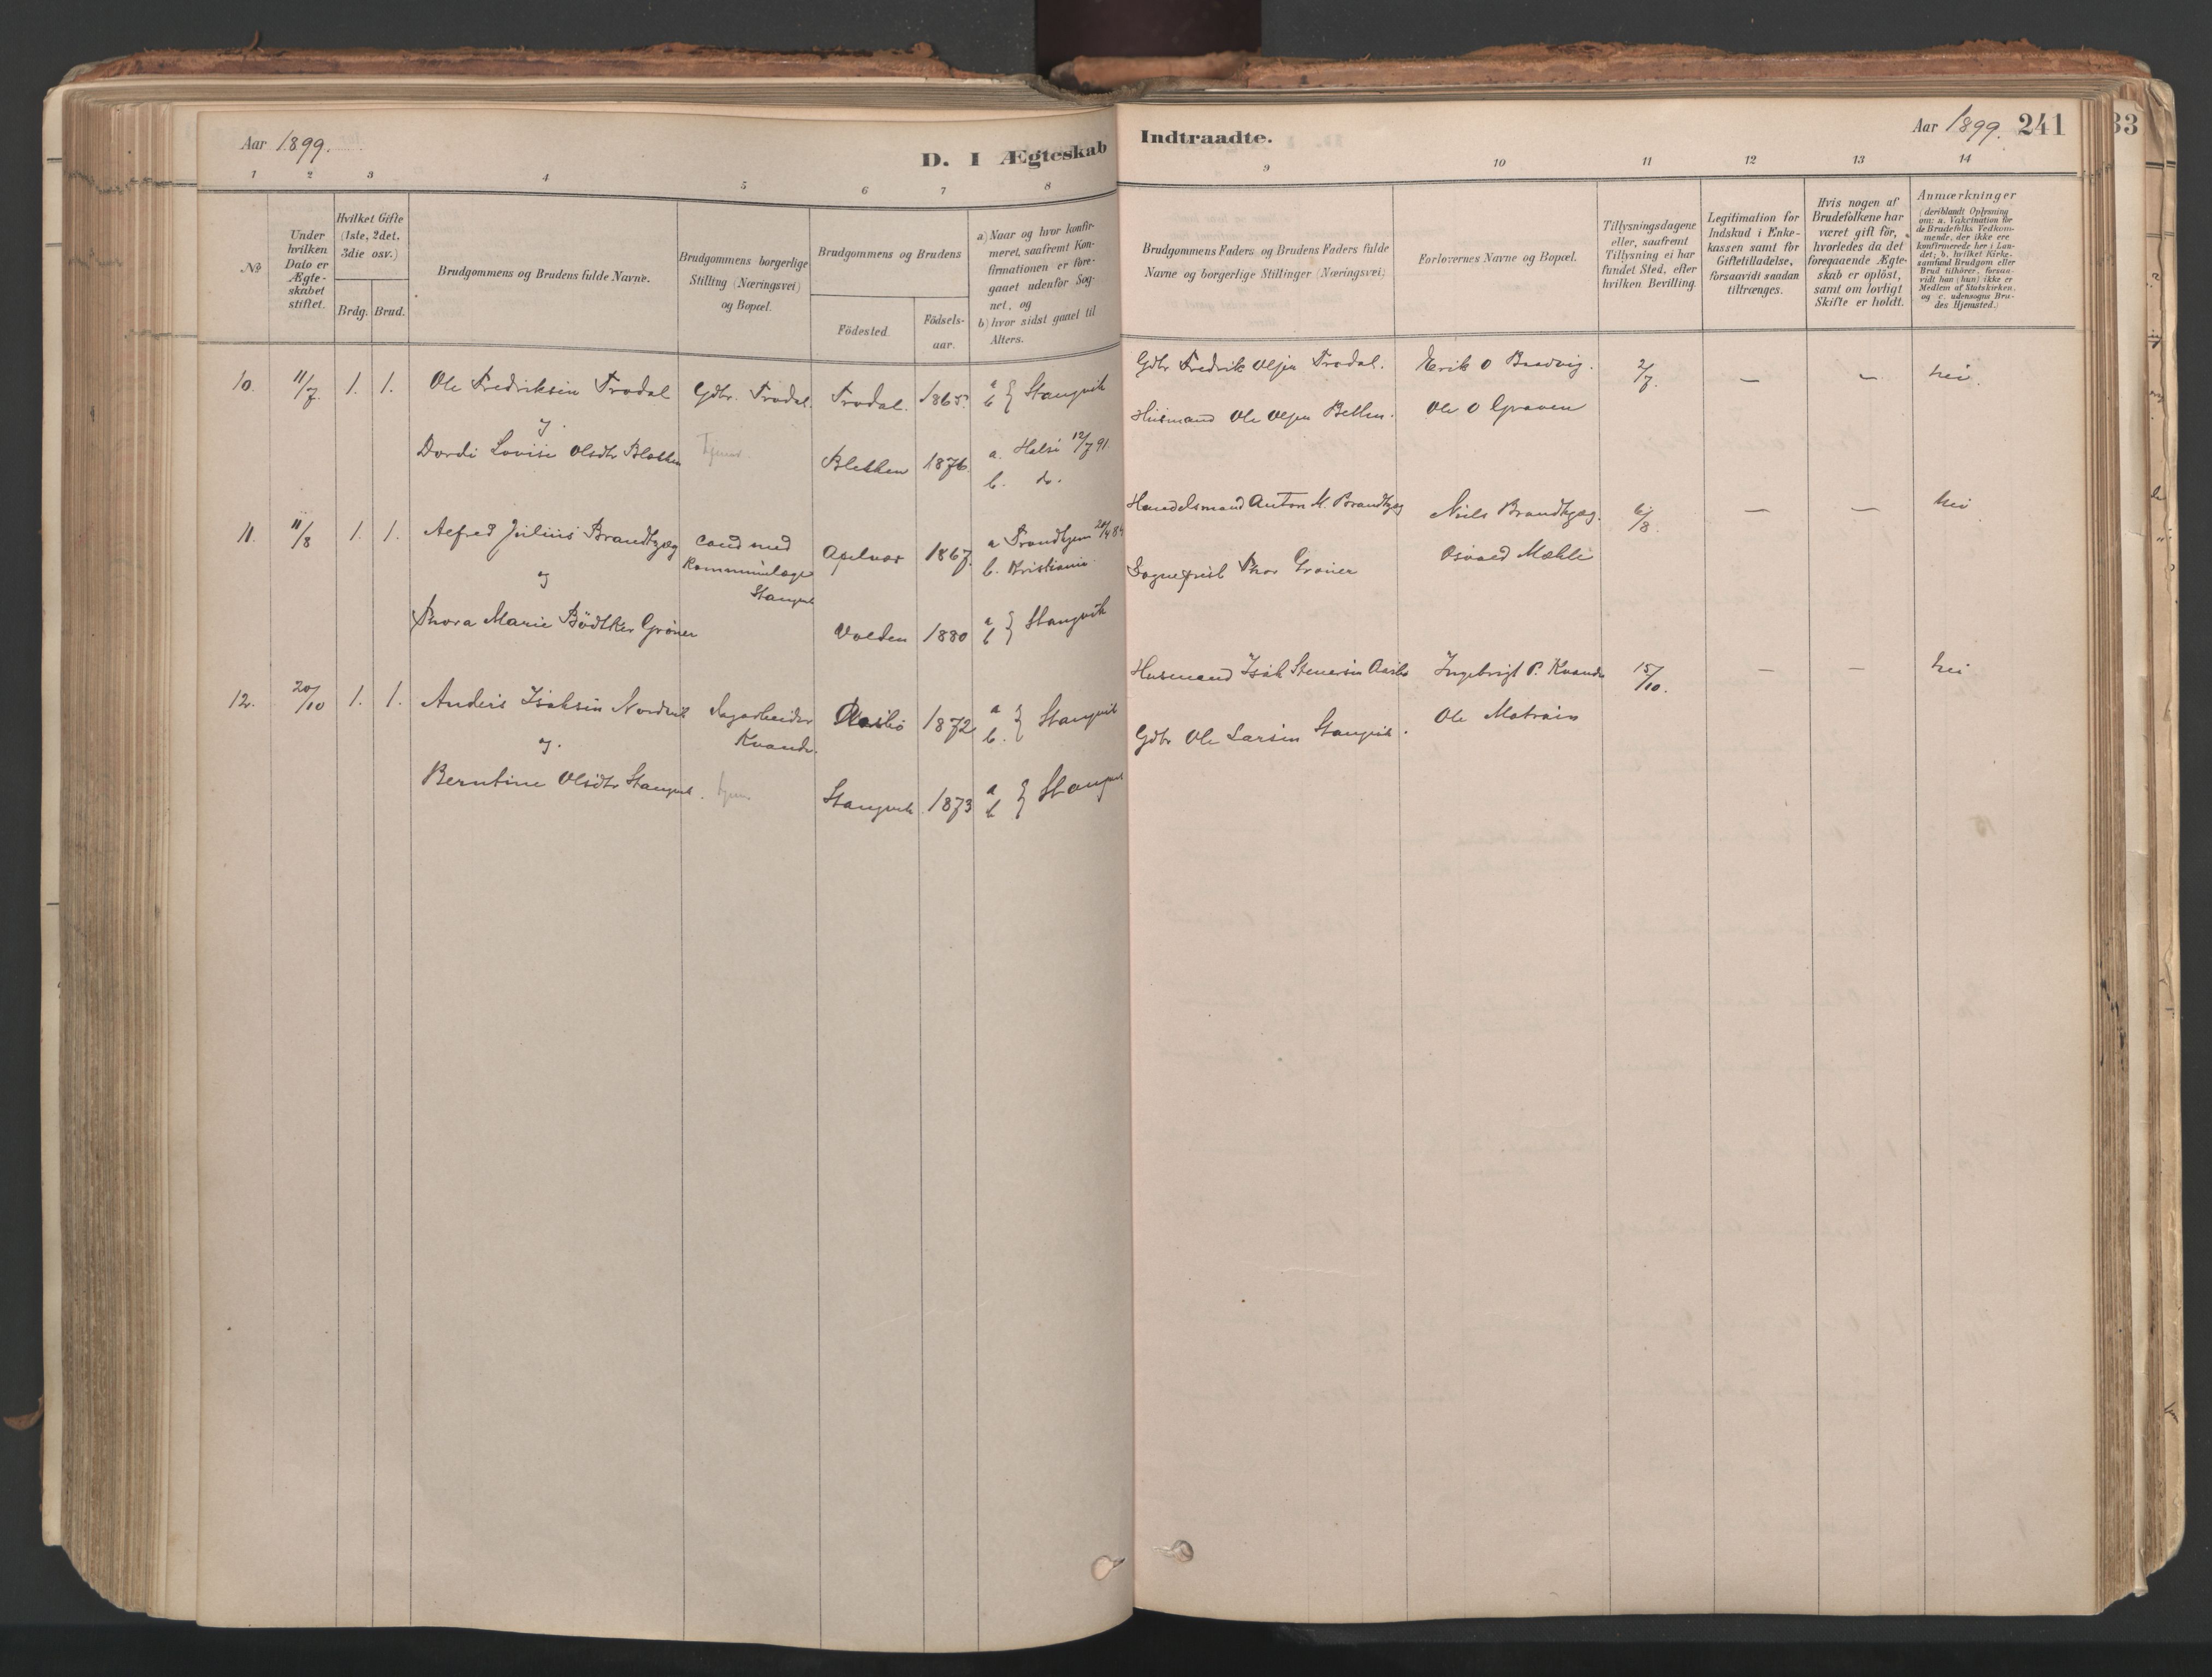 Aar 1899.
D. I Ægteskab
Indtraadte.
Aar 1899. 241
33
1 2 3 4 5 6 7 8 9 10 11 12 13 14
No
Under
hvilken
Dato er
Ægte-
skabet
stiftet.
Hvilket Gifte
(1ste, 2det,
3die osv.)
Brdg. Brud.
Brudgommens og Brudens fulde Navne.
Brudgommens borgerlige
Stilling (Næringsvei)
og Bopæl.
Brudgommens og Brudens
Födested.
Födsels-
aar.
a) Naar og hvor konfir-
meret, saafremt Kon-
firmationen er fore-
gaaet udenfor Sog-
net, og
b) hvor sidst gaaet til
Alters.
Brudgommens Faders og Brudens Faders fulde
Navne og borgerlige Stillinger (Næringsvei)
Forlovernes Navne og Bopæl.
Tillysningsdagene
eller, saafremt
Tillysning ei har
fundet Sted, efter
hvilken Bevilling.
Legitimation for
Indskud i Enke-
kassen samt for
Giftetilladelse,
forsaavidt saadan
tiltrænges.
Hvis nogen af
Brudefolkene har
været gift för,
hvorledes da det
foregaaende Ægte-
skab er oplöst,
samt om lovligt
Skifte er holdt.
Anmærkninger
(deriblandt Oplysning
om: a. Vakcination for
de Brudefolks Vedkom-
mende, der ikke ere
konfirmerede her i Lan-
det; b. hvilket Kirke-
samfund Brudgom eller
Brud tilhører, forsaa-
vidt han (hun) ikke er
Medlem af Statskirken,
og c. udensogns Bru-
des Hjemsted.)
10. 11/7 1. 1. Ole Fredriksen Trodal Gdbr. Trodal. Trodal. 1865. a b } Stangvik
Gdbr Fredrik Olsen Trodal. Erik O 2/7. — — nei.
Husmand Ole Olsen Ole O Graven
og
Dordi Lovise Olsdtr tjener 1876. a. Halse 12/7 91.
b. do.
11. 11/8 1. 1. Alfred Julius Brandtzæg cand med 1867. a Trondhjem
Kommunelæge b. Kristiania
Stangvik
Handelsmand Anton M. Brandtzæg Niels Brandtzæg. 6/8. — — nei
Sogneprest Thor Gröner Osvald Mæhle
og
Thora Marie Bödtker Gröner Volden 1880 a b } Stangvik
12. 20/10 1. 1. Anders Isaksen Nordvik dagarbeider Aasbö 1872 a b. } Stangvik
Kvande.
Husmand Isak Stenersen Aasbö Ingebrigt P. Kvande 15/10. — — nei
Gdbr Ole Larsen Stangvik. Ole
og.
Berntine Olsdtr Stangvik. tjen. Stangvik 1873 a b } Stangvik